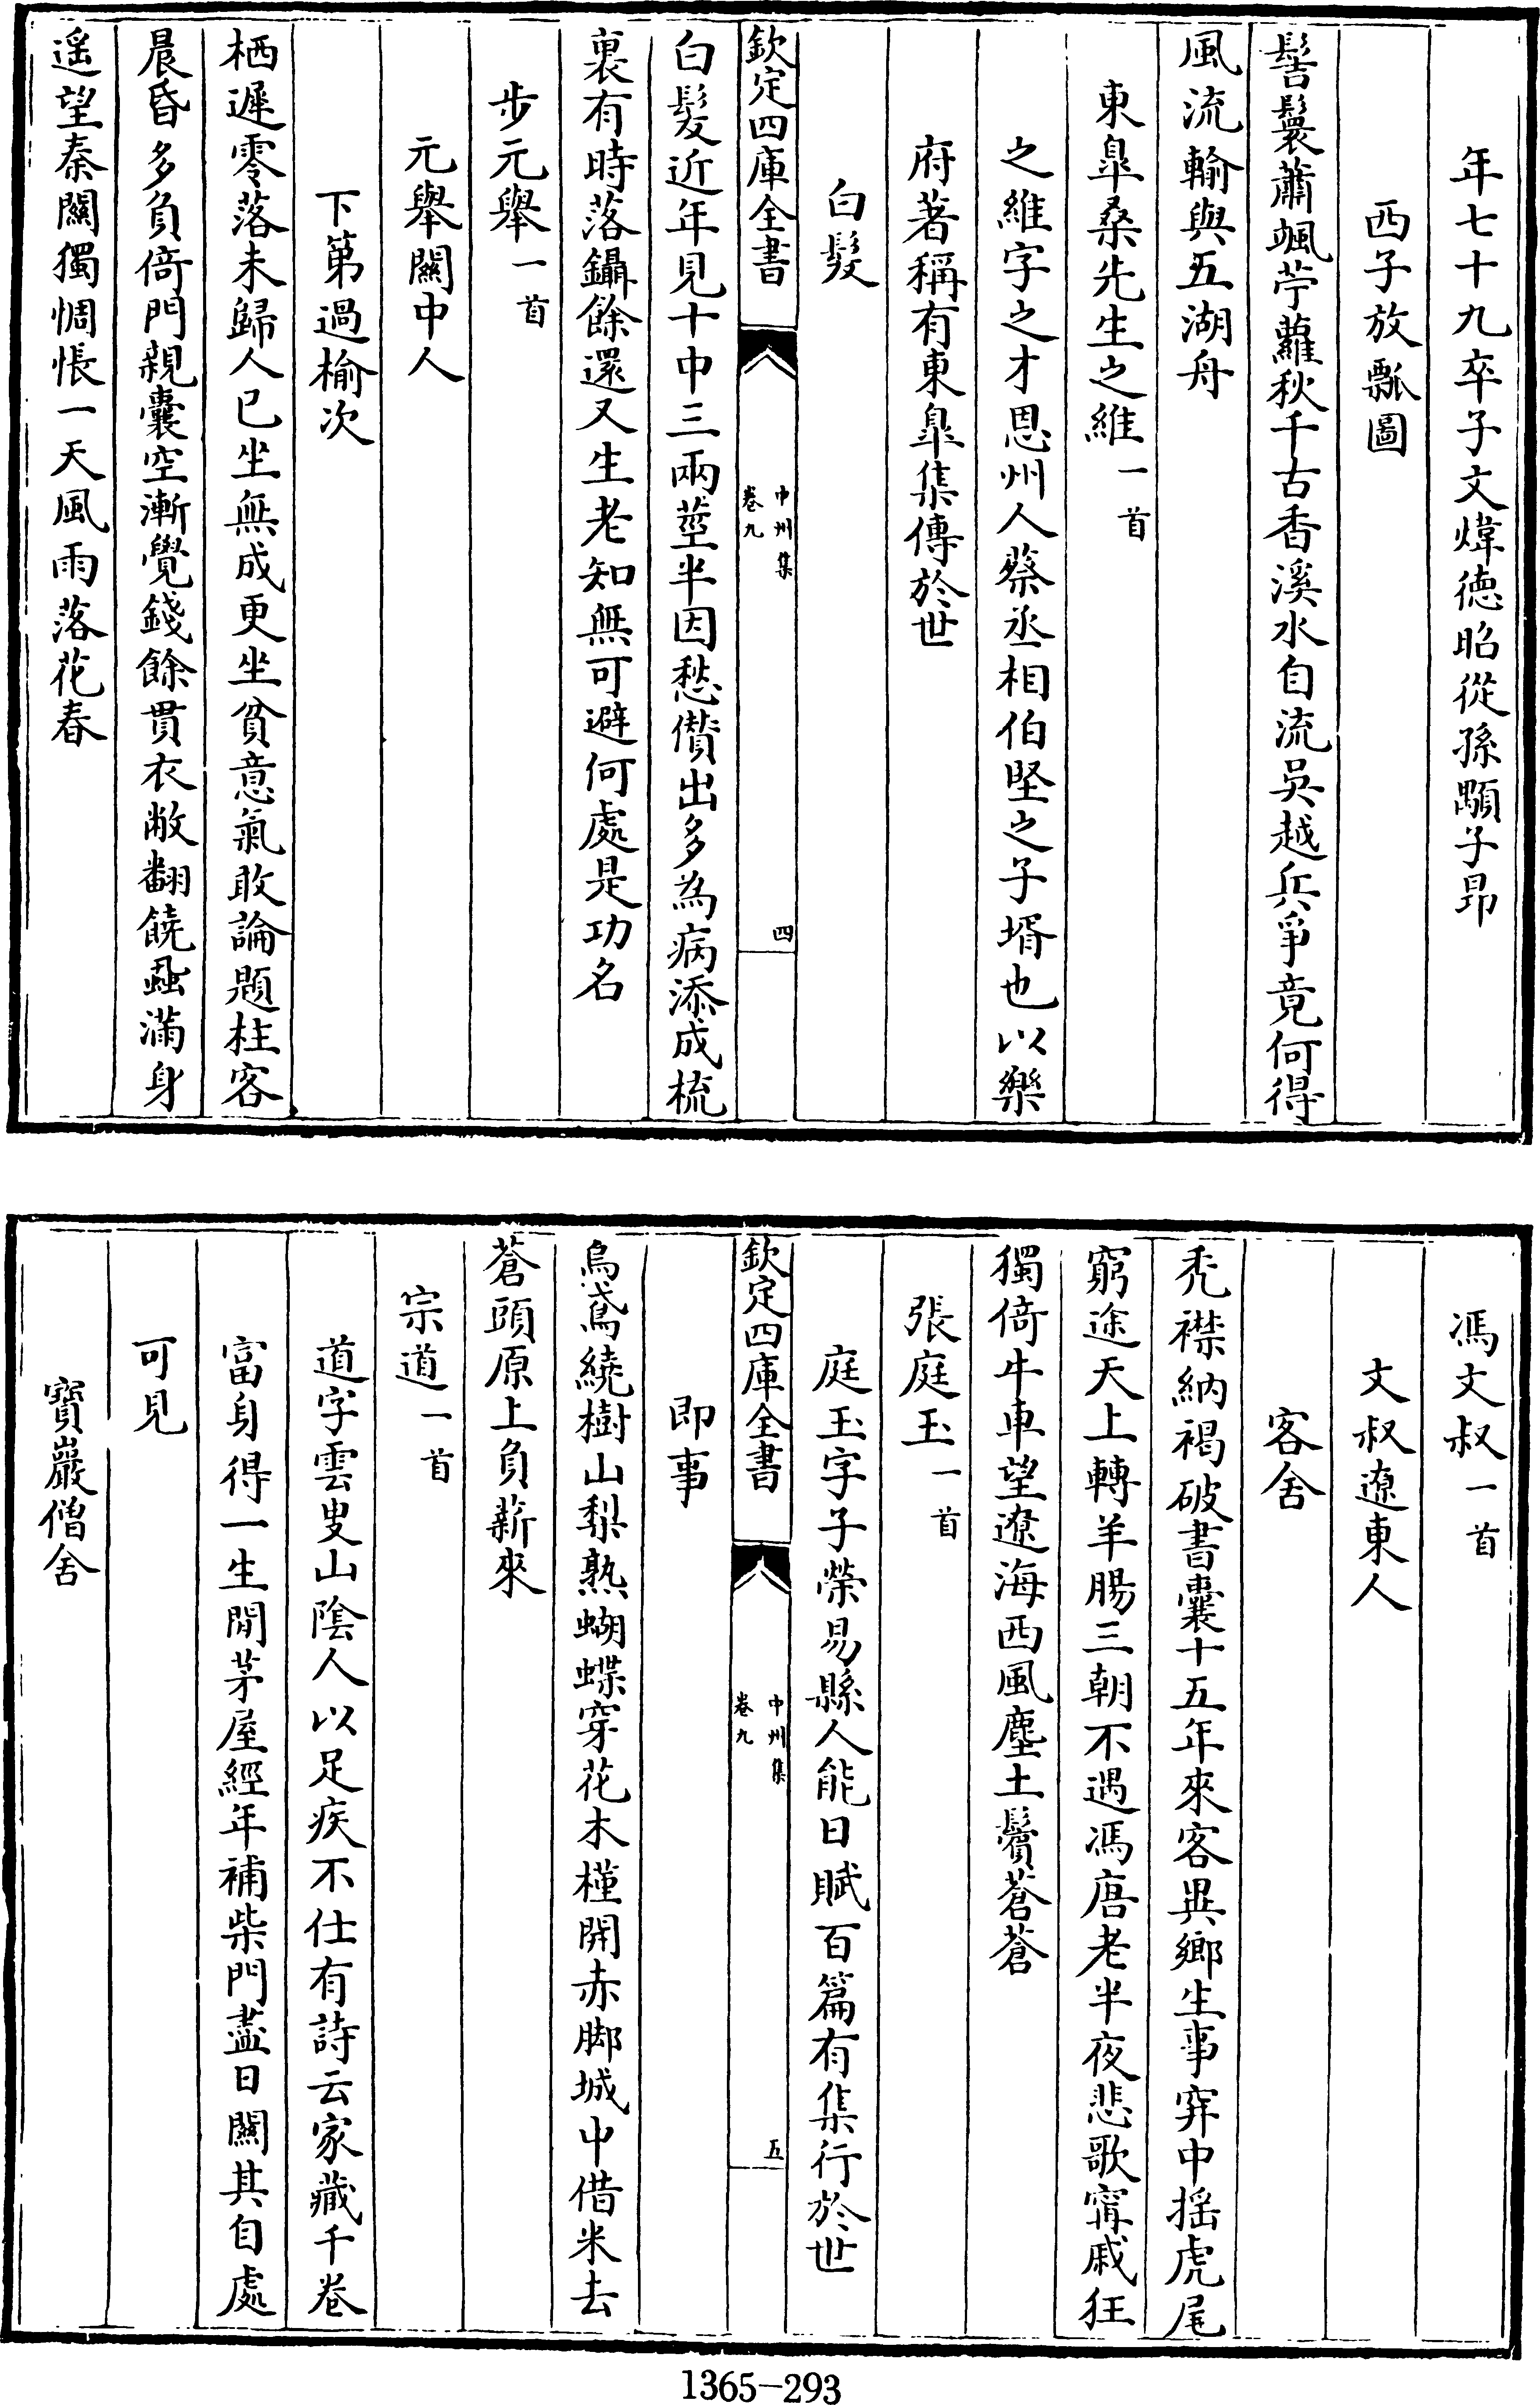 年七十九卒子文煒徳昭從孫顒子昂
西子放瓢圖
髻鬟蕭颯苧蘿秋千古香溪水自流吳越兵爭竟何得
風流輸與五湖舟
東臯桑先生之維一首
之維字之才恩州人蔡丞相伯堅之子壻也以樂
府著稱有東臯集傳於世
白髮
欽定四庫全書
中州集
卷九
四
白髮近年見十中三兩莖半因愁儹出多為病添成梳
裏有時落鑷餘還又生老知無可避何處是功名
步元舉一首
元舉關中人
下第過榆次
栖遲零落未歸人已坐無成更坐貧意氣敢論題柱客
晨昏多負倚門親囊空漸覺錢餘貫衣敝翻饒蝨滿身
遥望秦關獨惆悵一天風雨落花春
馮文叔一首
文叔遼東人
客舍
禿襟納褐破書囊十五年來客異鄉生事穽中揺虎尾
窮途天上轉羊腸三朝不遇馮唐老半夜悲歌甯戚狂
獨倚牛車望遼海西風塵土鬢蒼蒼
張庭玉一首
庭玉字子榮易縣人能日賦百篇有集行於世
欽定四庫全書
中州集
卷九
五
即事
烏鳶繞樹山梨熟蝴蝶穿花木槿開赤脚城中借米去
蒼頭原上負薪來
宗道一首
道字雲叟山陰人以足疾不仕有詩云家藏千卷
富身得一生閒茅屋經年補柴門盡日關其自處
可見
寳巖僧舍
1365-293